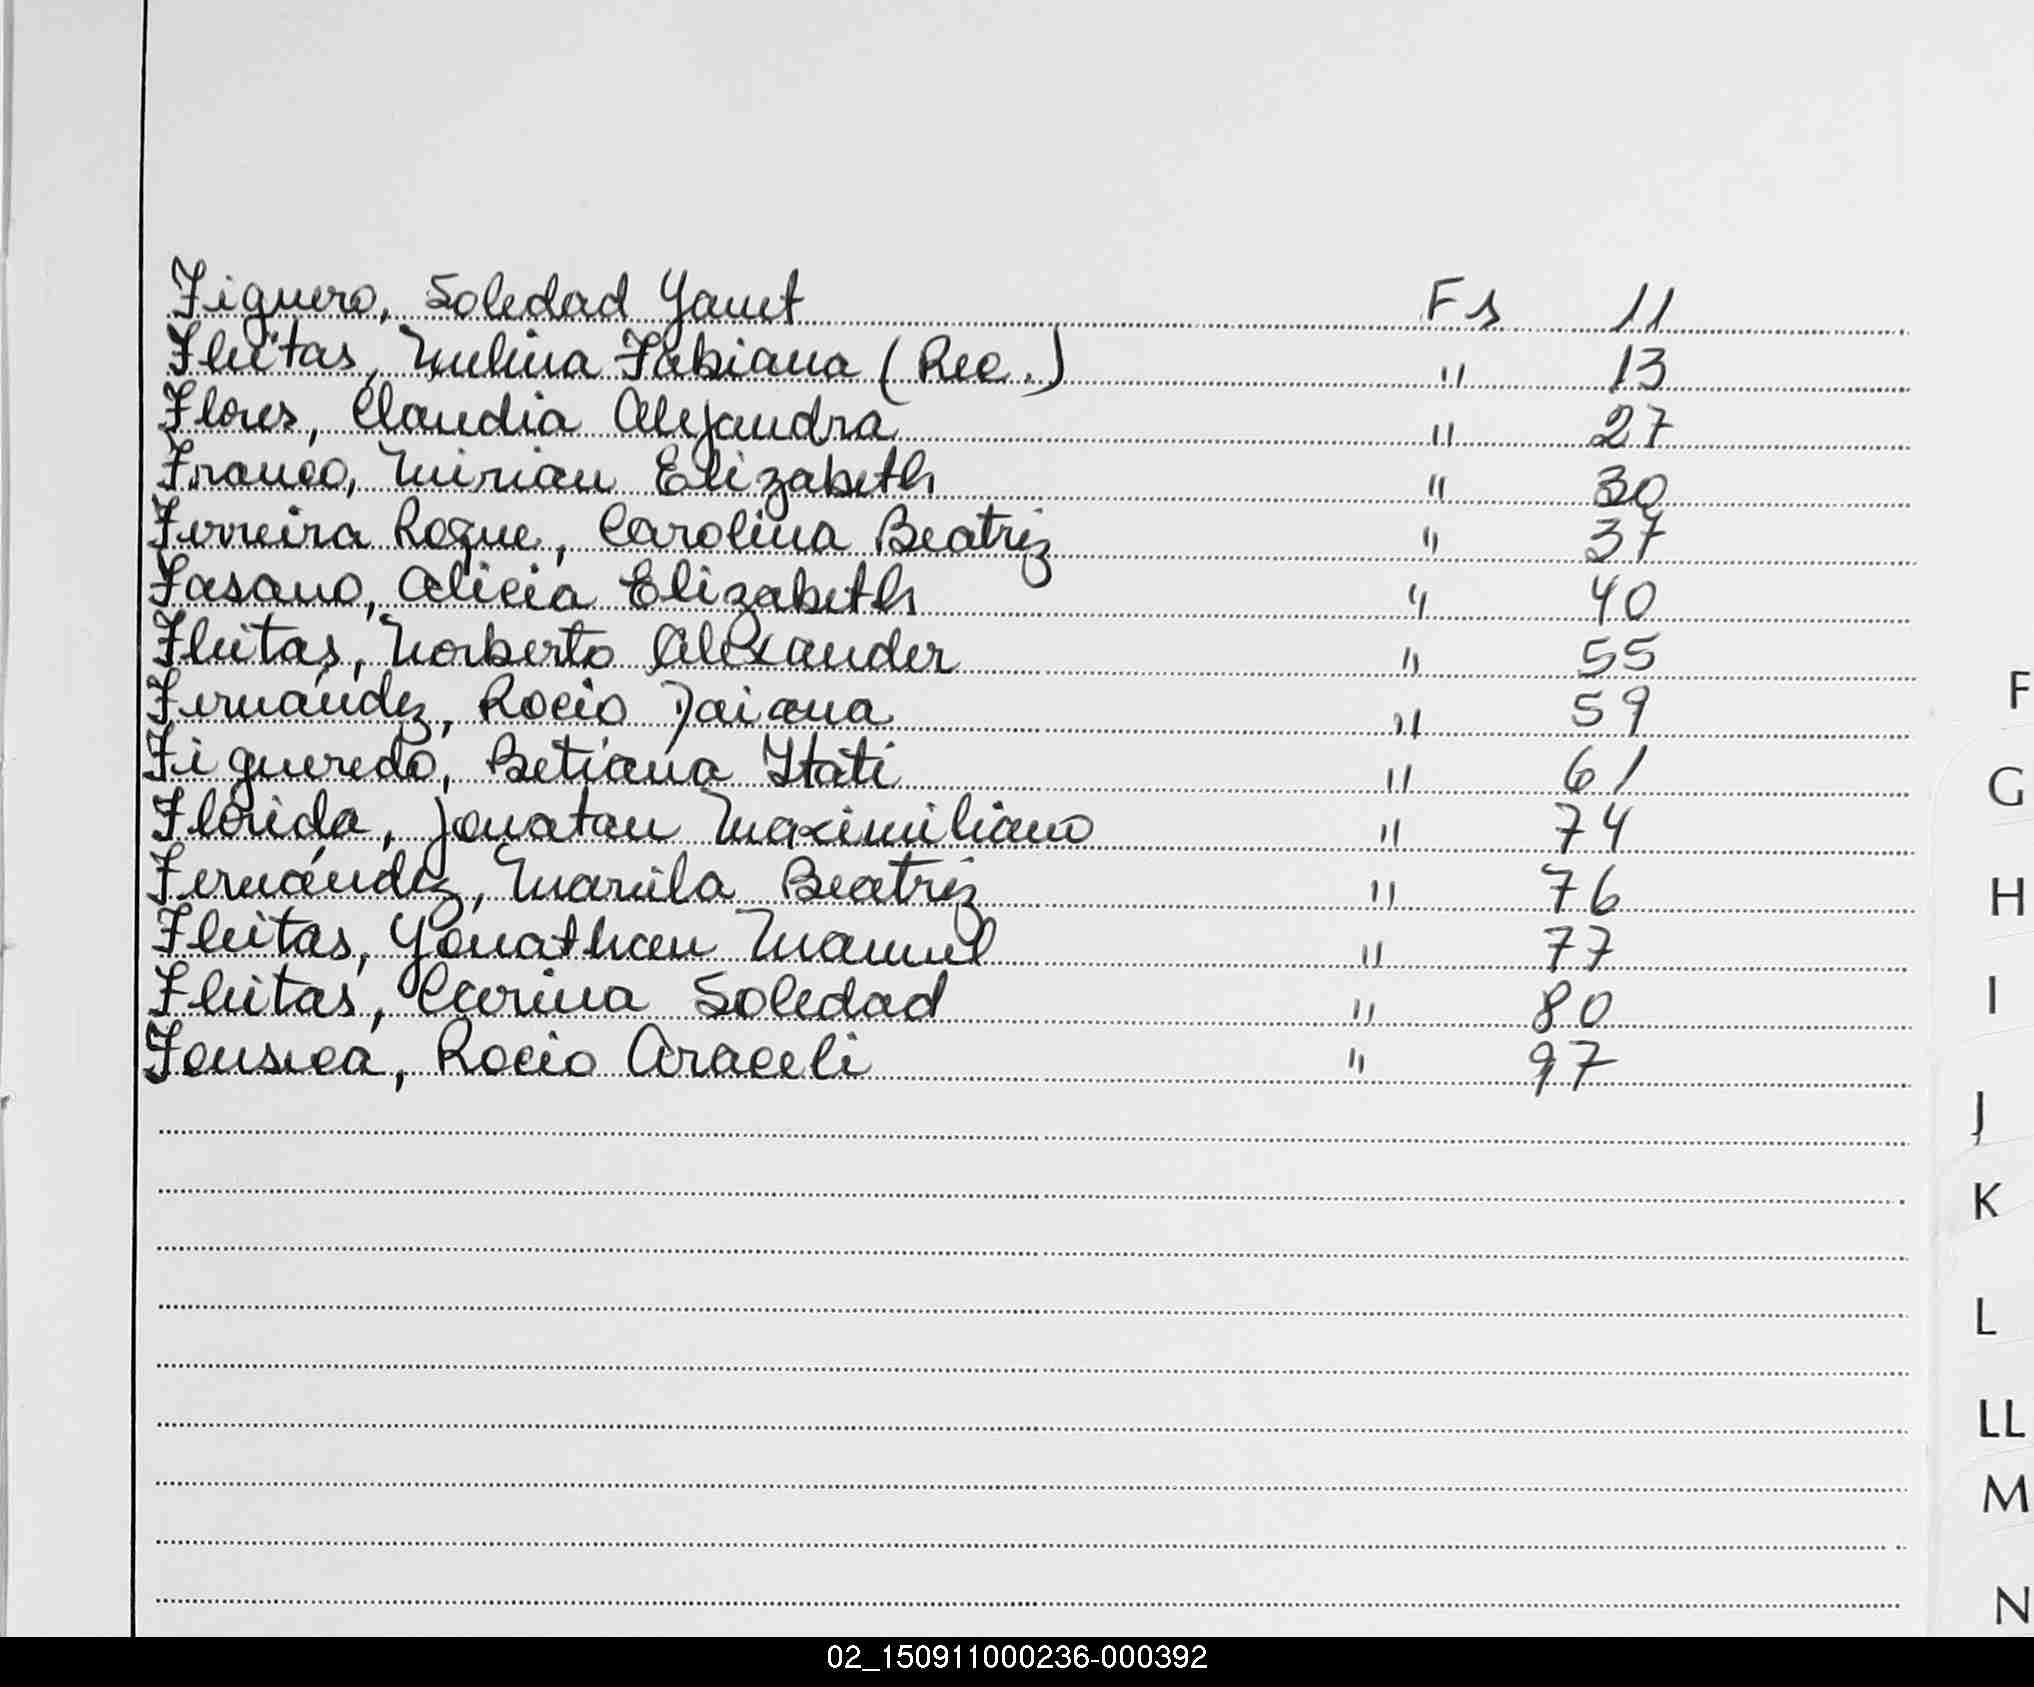 Figuero, Soledad Yanet Fs 11
Fleitas, Melina Fabiana (Rec.) " 13
Flores, Claudia Alejandra " 27
Franco, Mirian Elizabeth " 30
Ferreira Roque, Carolina Beatriz " 37
Fasano, Alicia Elizabeth " 40
Fleitas, Norberto Alexander " 55
Fernández, Rocio Daiana " 59
F
Figueredo, Betiana Itati " 61
G
Florida, Jonatan Maximiliano " 74
Fernández, Mariela Beatriz " 76
H
Fleitas, Yonathan Manuel " 77
Fleitas, Carina Soledad " 80
I
Fonseca, Rocio Araceli " 97
J
K
L
LL
M
N
02_150911000236-000392